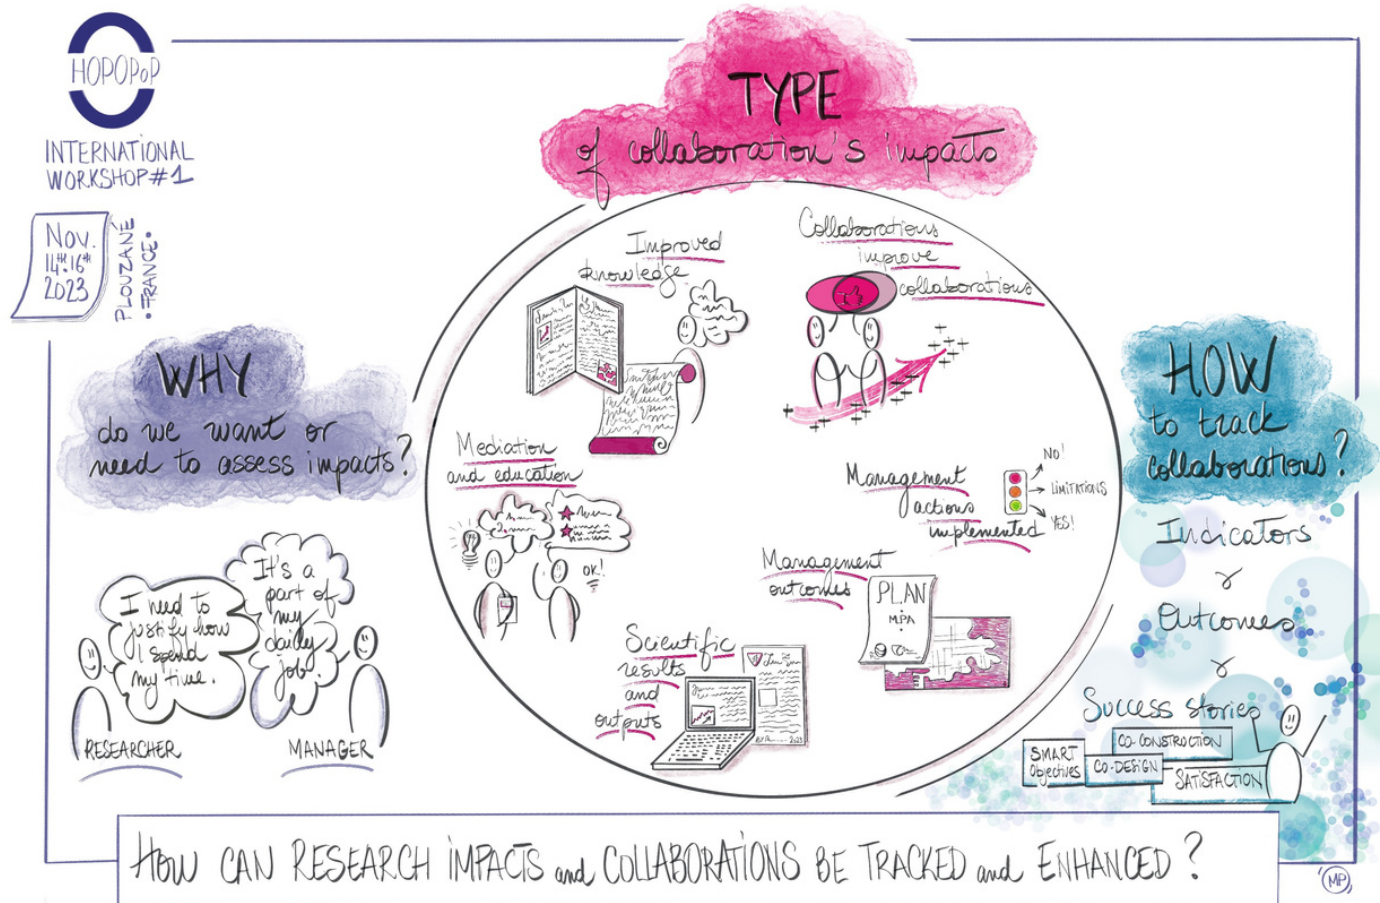 HOPOPoP
INTERNATIONAL
WORKSHOP #1
Nov.
14th.16th
2023
PLOUZANÉ
• FRANCE •
TYPE
of collaboration's impacts
Improved
knowledge
Collaborations
improve
collaborations
Mediation
and education
1.
2.
OK!
Management
actions
implemented
NO!
LIMITATIONS
YES!
Management
outcomes
PLAN
• MPA •
Scientific
results
and
outputs
2023
WHY
do we want or
need to assess impacts?
I need to
justify how
I spend
my time.
RESEARCHER
It's a
part of
my
daily
job.
MANAGER
HOW
to track
collaborations?
Indicators
Outcomes
Success stories
SMART
Objectives
CO-CONSTRUCTION
CO-DESIGN
SATISFACTION
HOW CAN RESEARCH IMPACTS and COLLABORATIONS BE TRACKED and ENHANCED ?
MP